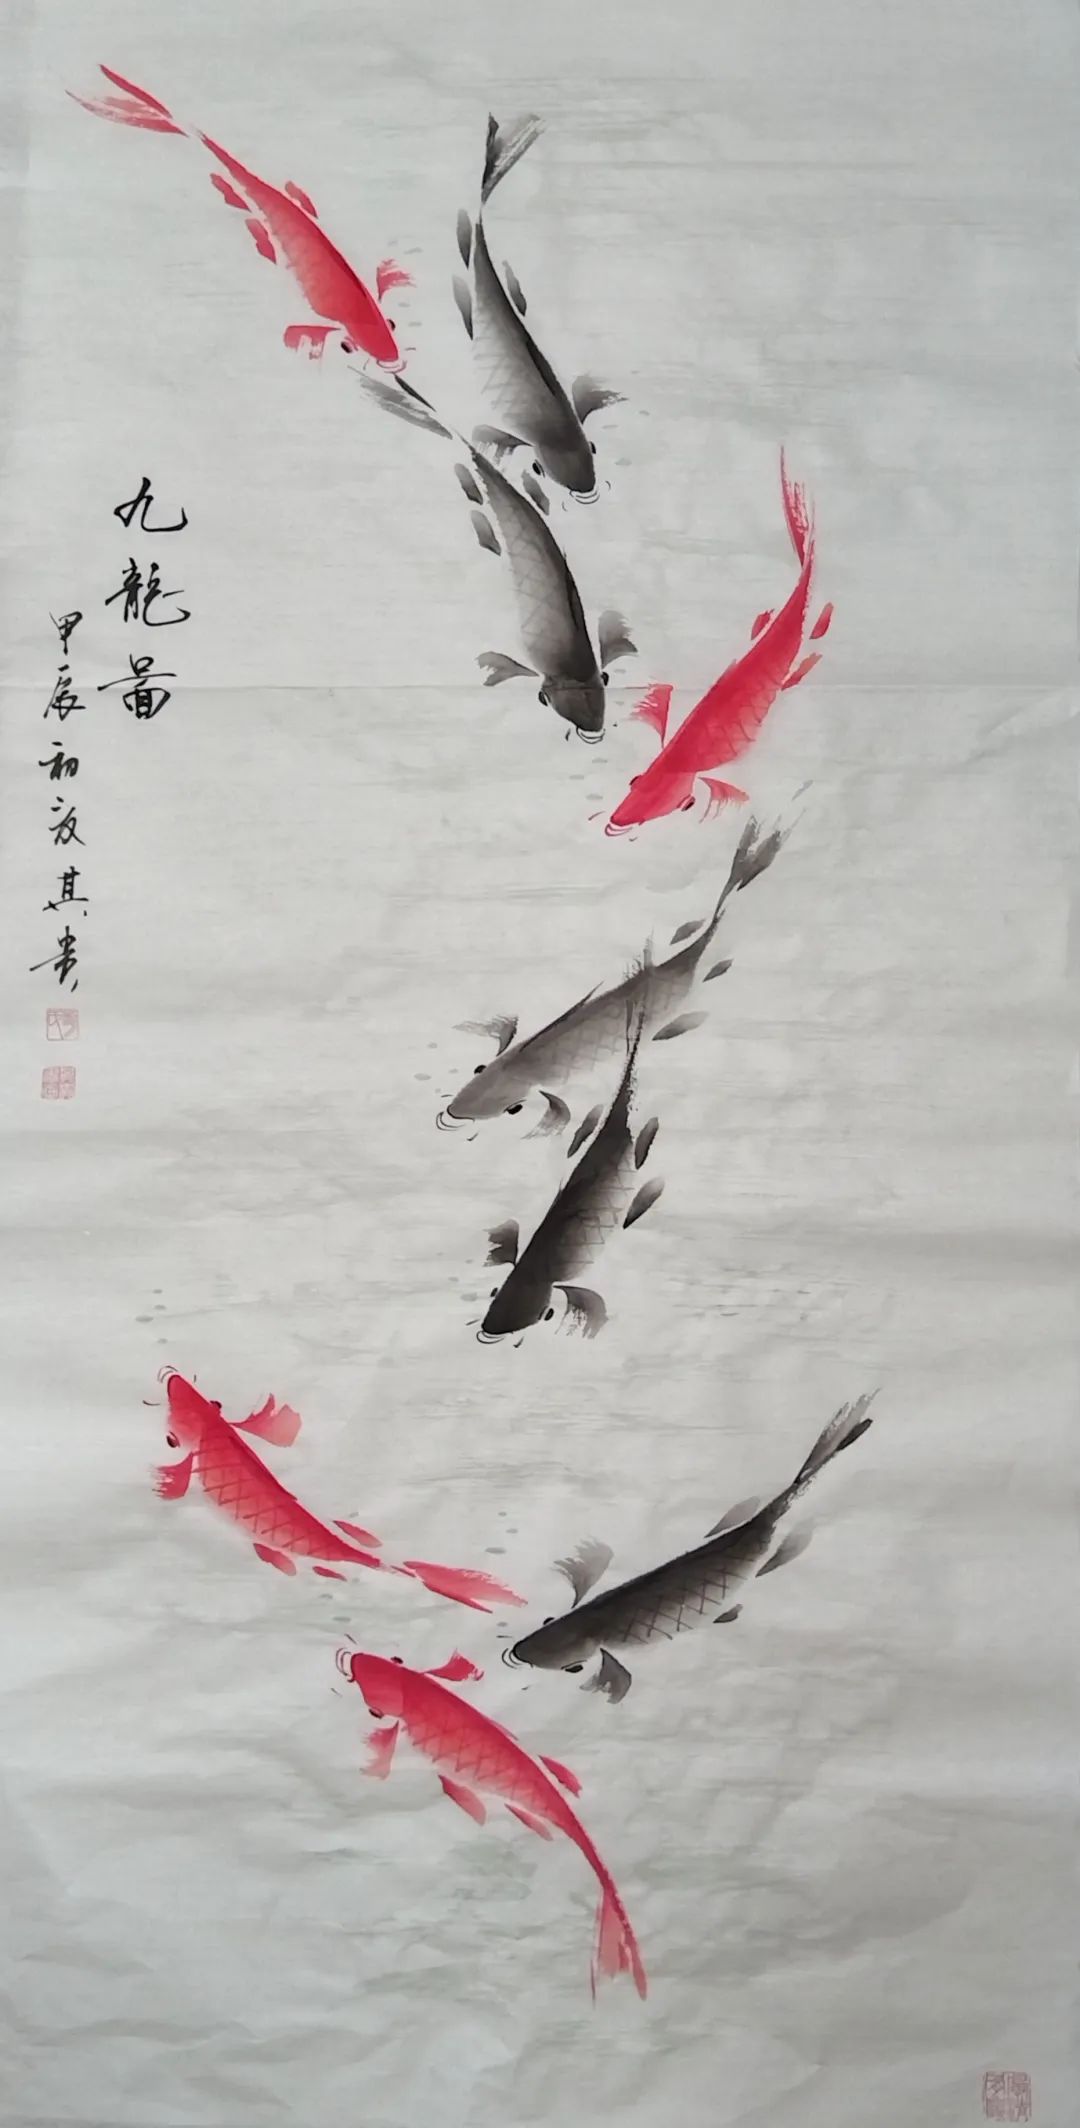 九龍圖
甲辰初夏其贵